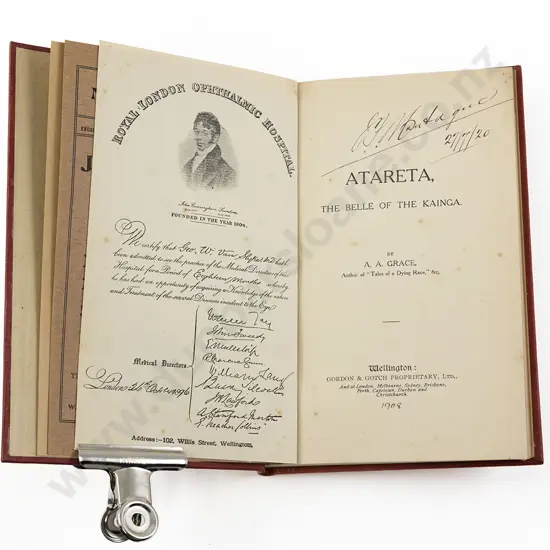 ROYAL LONDON OPHTHALMIC HOSPITAL.
John Cunningham Saunders
FOUNDED IN THE YEAR 1804.
We certify that Geo. W. Van
been admitted to see the practice of the Medical Directors of this
Hospital for a Period of Eighteen months whereby
he has had an opportunity of acquiring a Knowledge of the nature
and Treatment of the several Diseases incident to the Eye.
Waren Tay
John Tweedy
E Nettleship
William Lang
A Stanford Morton
E Treacher Collins
Medical Directors
London 26th October 1896
Address:—102, Willis Street, Wellington.
27/7/20
ATARETA,
THE BELLE OF THE KAINGA.
BY
A. A. GRACE,
Author of "Tales of a Dying Race," &c.
Wellington:
GORDON & GOTCH PROPRIETARY, LTD.,
And at London, Melbourne, Sydney, Brisbane,
Perth, Capetown, Durban and
Christchurch.
1908